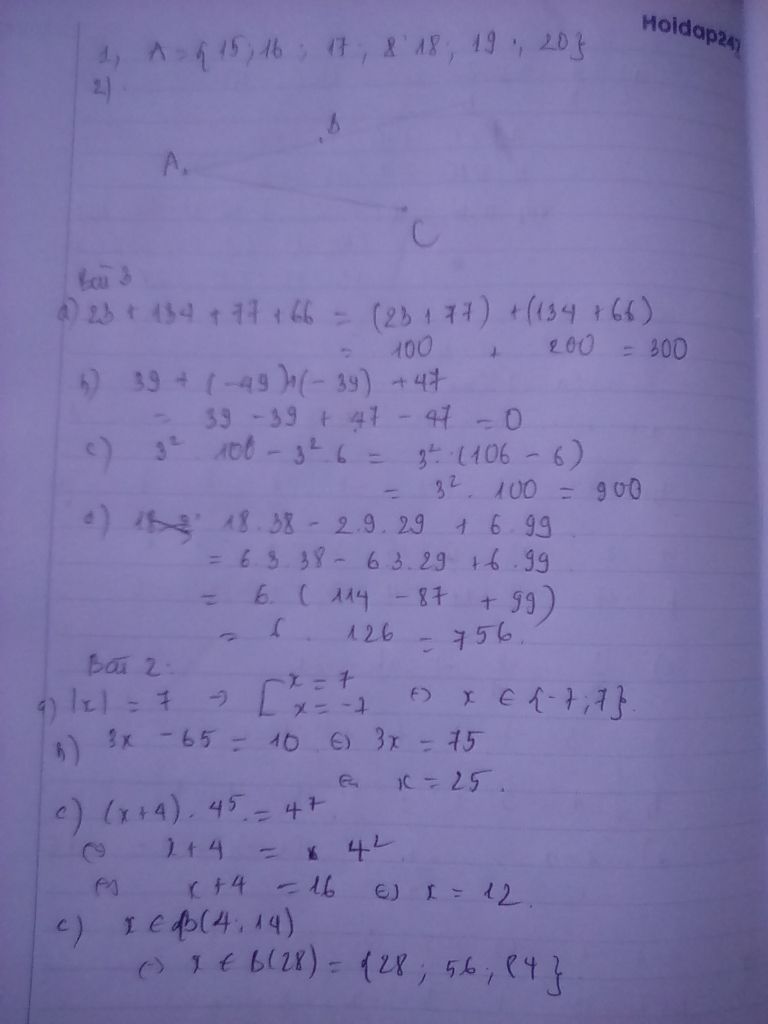 Hoidap247
1, A = { 15 ; 16 ; 17 ; 8 18 ; 19 ; 20 }
2)
B
A
C
Bài 3
a) 23 + 134 + 77 + 66 = (23 + 77) + (134 + 66)
= 100 + 200 = 300
b) 39 + (-49) + (-39) + 47
= 39 - 39 + 47 - 47 = 0
c) 3² 106 - 3² 6 = 3² . (106 - 6)
= 3² . 100 = 900
d) 18.38 - 2.9.29 + 6.99
= 6.3.38 - 6.3.29 + 6.99
= 6. ( 114 - 87 + 99)
= 6 . 126 = 756.
Bài 2:
a) |x| = 7 → [ x = 7 x = -7 ⇔ x ∈ {-7 ; 7}.
b) 3x - 65 = 10 ⇔ 3x = 75
⇔ x = 25.
c) (x+4) . 4⁵ = 4⁷
⇔ x + 4 = 4²
⇔ x + 4 = 16 ⇔ x = 12.
c) x ∈ B(4; 14)
⇔ x ∈ B(28) = {28 ; 56 ; 84}